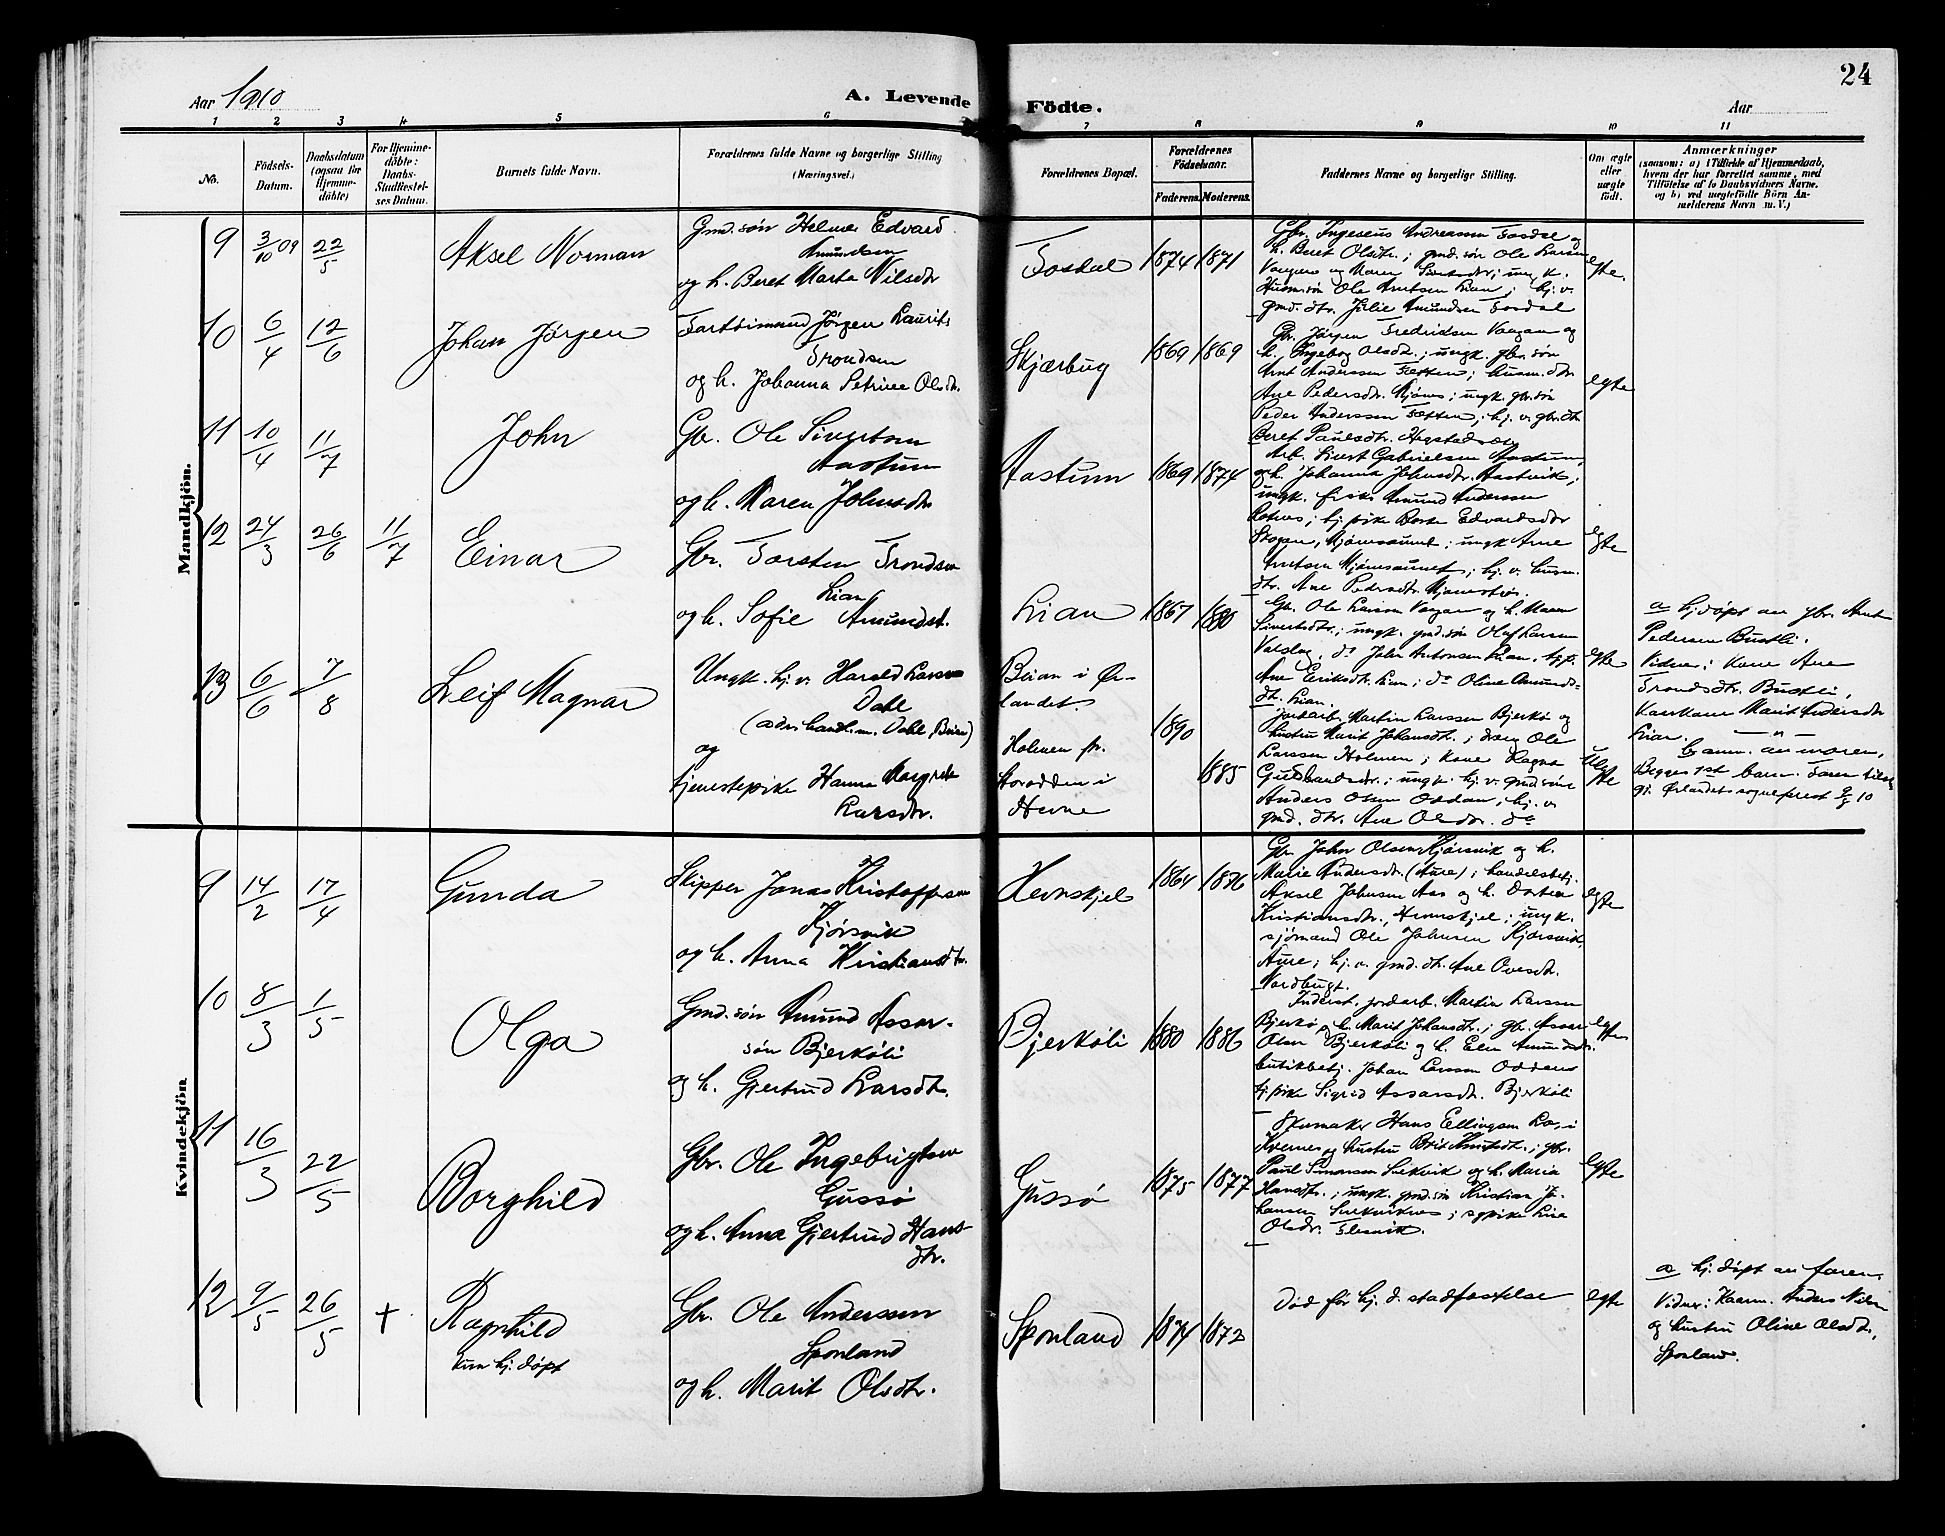 24
Aar 1910
A. Levende Födte.
Aar
1 2 3 4 5 6 7 8 9 10 11
No.
Födsels-
Datum.
Daabsdatum
(ogsaa for
Hjemme-
döbte)
For Hjemme-
döbte:
Daabs-
Stadfæstel-
ses Datum.
Barnets fulde Navn.
Forældrenes fulde Navne og borgerlige Stilling
(Næringsvei.)
Forældrenes Bopæl.
Forældrenes
Födselsaar.
Faderens. Moderens.
Faddernes Navne og borgerlige Stilling.
Om ægte
eller
uægte
födt.
Anmærkninger
(saasom: a) i Tilfælde af Hjemmedaab,
hvem der har forrettet samme, med
Tilföielse af to Daabsvidners Navne.
og b) ved uægtefödte Börn An-
melderens Navn m. V.)
Mandkjön.
9 3/10 09 22/5 Aksel Norman
Gmd.sön Helmer Edvard
Amundsen
og h. Beret Marta Nilsdtr
Fosdal 1874 1871
Gbr. Ingeseus Andreassen Fosdal og
h. Beret Olsdtr.; gmd.sön Ole Larsen
Vaagan og Maren Sivertsdtr; ungk.
Husm.sön Ole Arntsen Lian; hj. v.
gmd. dtr. Julie Amundsen Fosdal
egte.
10 6/4 12/6 Johan Jørgen
Jørgen Laurits
Trondsen
og h. Johanna Petrine Olsdtr.
Skjærbug 1869 1869
Gbr. Jørgen Fredriksen Vaagan og
h. Ingebog Olsdtr.; ungk. gbr. søn
Arnt Anderssen Fætten; husm. dtr
Ane Pedersdtr. Mjønes; ungk. gbr. søn
Peder Anderssen Fætten; hj. v. gbr. dtr
Beret Paulsdtr. Hegstad
egte
11 10/4 11/7 John
Gbr. Ole Sivertsen
Aastum
og h. Maren Johnsdtr
Aastum 1869 1874
Arb. Sivert Gabrielsen Aastum,
og h. Johanna Johnsdtr. Aastvik;
ungk. Amund Anderssen
hj. pike Edvardsdtr
Skogan, Mjønesaunet; ungk Arne
Arntsen Mjønesaunet; hj. v. husm.
dtr. Ane Pedersdtr. Mjønes
egte
12 24/3 26/6 11/7 Einar
Gbr. Torsten Trondsen
Lian
og h. Sofie Amundsdt.
Lian 1867 1880
Gbr. Ole Larsen Vaagan og h. Maren
Sivertsdtr.; ungk. gmd.søn Olaf Larsen
Valslag, do John Antonsen Lian, hj. p.
Ane Eriksdtr. Lian; do Oline Amunds-
dtr. Lian.
egte
a hj.døpt av gbr. Arnt
Pedersen Bustli.
Vidner: Kone Ane
Trondsdtr. Bustli,
Kaarkone Marit Andersdtr
Lian.
13 6/6 7/8 Leif Magnar
Ungk. hj. v. Harald Larsen
Dahl
(adr. handl.m. Dahl, Beian)
og
tjenestepike Hanna Margrete
Larsdtr.
Beian i Ør-
landet.
Holmen pr.
Storodden i
Hevne
1890
1885
Jordarb. Martin Larssen Bjerkø og
hustru Marit Johansdtr.; dræng Ole
Larssen Holmen; kone Ragna
Gulbrandsdtr.; ungk. hj. v. gmd.søn
Anders Olsen Oddan; hj. v.
gmd. dtr. Ane Olsdtr. do
Uegte
b anm. av moren,
Begges 1st barn. Faren
Ørlandets sogneprest 9/9 10
Kvindekjön
9 14/2 17/4 Gunda
Skipper Jonas Kristoffersen
Kjørsvik
og h. Anna Kristiansdtr.
Hevnskjel 1864 1876
Gbr. John Olsen Kjørsvik og h.
Marie Andersdtr. (Aure); handelsbetj.
Aksel Johnsen Aas og h. Dortea
Kristiansdtr., Hevnskjel; ungk.
sjømand Ole Johnsen Kjørsvik,
Aure; hj. v. gmd. dtr. Ane Ovesdtr.
Nordbugt.
egte
10 8/3 1/5 Olga
Gmd.søn Amund Assar-
søn Bjerkøli
og h. Gjertrud Larsdtr.
Bjerkøli 1880 1886
Inderst. jordarb. Martin Larssen
Bjerkø og h. Marit Johansdtr.; gbr. Assar
Olsen Bjerkøli og h. Elen Amundsdtr.
butikbetj. Johan Larssen Odden
hj. pike Sigrid Assarsdtr. Bjerkøli
egte
11 16/3 22/5 Borghild
Gbr. Ole Ingebrigtsen
Gussø
og h. Anna Gjertrud Hans-
dtr.
Gussø 1875 1877
Skomaker Hans Ellingsen Lo, i
Kvernes og hustru Brit Knutsdtr.; gbr.
Paul Simonsen Selkvik og h. Maria
Hansdtr.; ungk. gmd.søn Kristian Jo-
hansen; pike Lina
Olsdtr. Flesvik.
egte
12 9/5 26/5 + Ragnhild
kun hj. døpt
Gbr. Ole Anderssen
Sponland
og h. Marit Olsdtr.
Sponland 1874 1872
Død før hj. d. stadfæstelse
egte
a hj. døpt av faren.
Vidner: Kaarm. Anders Nilsen
og hustru Oline Olsdtr,
Sponland.